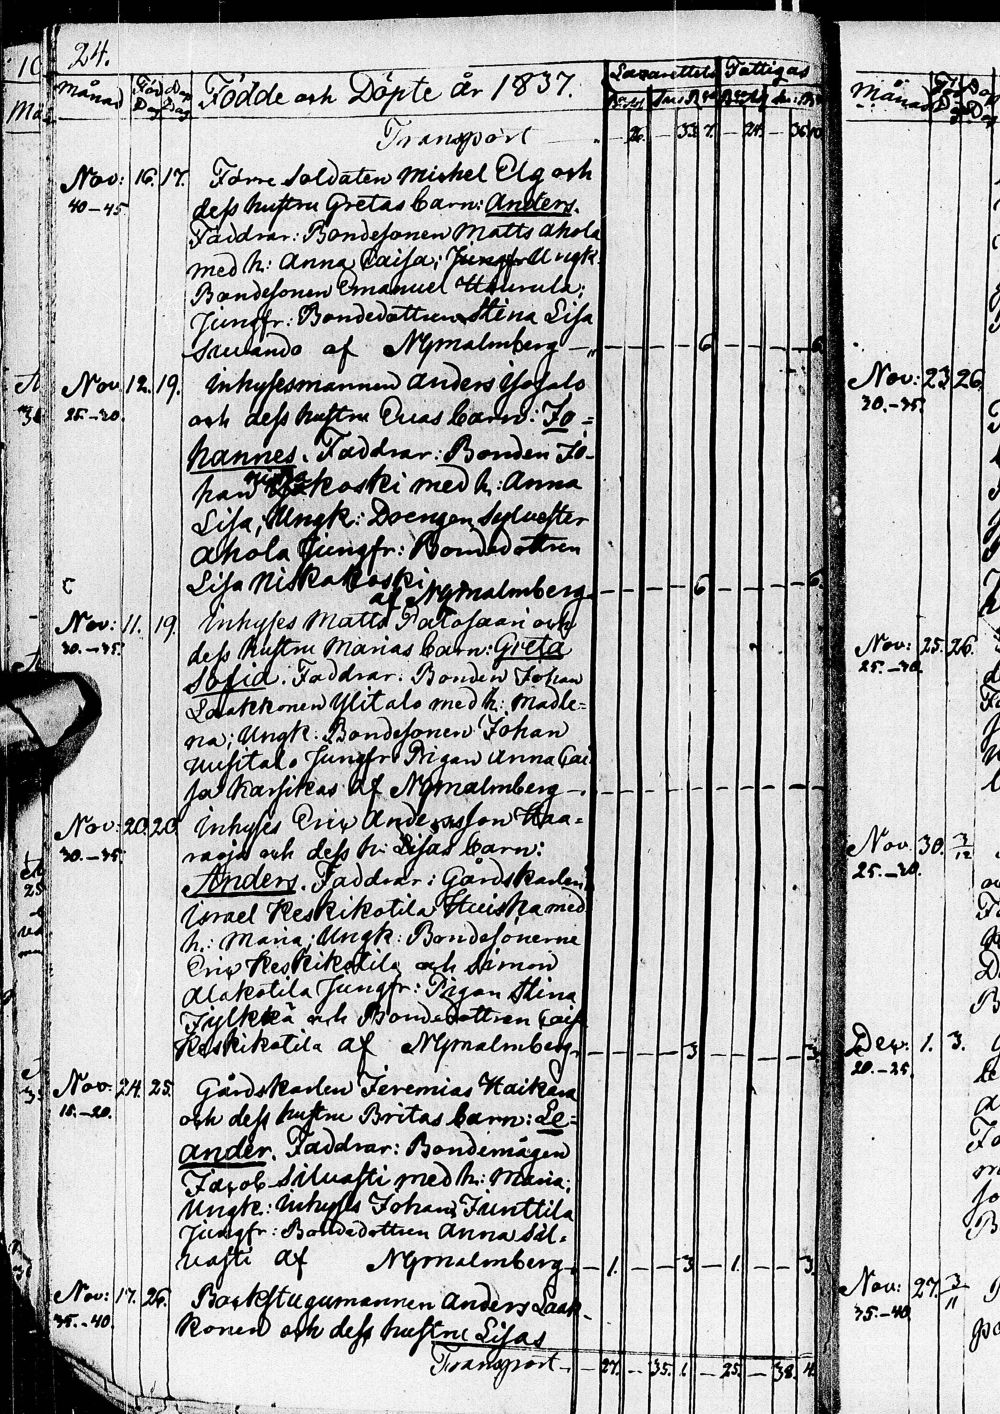 24.
Månad Föd Dag Döp Dag Födde och Döpte år 1837. Lazarettets Fattigas
Transport 26. 33. 7. 24. 36. 10
Nov: 16. 17. Förre Soldaten Michel Elg och
40–45 dess hustru Gretas barn: Anders.
Faddrar: Bondesonen Matts Ahola
med h: Anna Caisa; Ungk:
Bondesonen Emanuel Haurula;
Jungfr: Bondedottren Stina Lisa
Siuvando af Nymalmberg — 6 6
Nov. 12. 19. Inhysesmannen Anders Isosalo
25–30. och dess hustru Evas barn: Jo-
hannes. Faddrar: Bonden Jo-
han Niskakoski med h: Anna
Lisa, Ungk: Drengen Sylvester
Ahola Jungfr: Bondedottren
Lisa Niskakoski
af Nymalmberg 6 6.
Nov: 11. 19. Inhyses Matts Patosaari och
30.–35. dess hustru Marias barn: Greta
Sofia. Faddrar: Bonden Johan
Laakkonen Ylitalo med h: Madle-
na; Ungk. Bondesonen Johan
Uusitalo Jungfr Pigan Anna Cai-
sa Karsikas af Nymalmberg —
Nov: 20. 20. Inhyses Eric Andersson Haa-
30.–35. raoja och dess h: Lisas barn:
Anders. Faddrar: Gårdskarlen
Israel Keskikotila Huiska med
h: Maria; Ungk: Bondesönerne
Eric Keskikotila och Simon
Alakotila Jungfr: Pigan Stina
Jylkkä och Bondedottren Caisa
Keskikotila af Nymalmberg 3 3.
Nov. 24. 25. Gårdskarlen Jeremias Haikara
15.–20. och dess hustru Britas barn: Le-
ander. Faddrar: Bondemågen
Jacob Siluasti med h: Maria;
Ungk: Inhyses Johan Junttila
Jungfr: Bondedottren Anna Sil-
uasti af Nymalmberg 1. 3 1. 3.
Nov: 17. 26. Backstugumannen Anders Laak-
35.–40. konen och dess hustru Lisas
Transport 27. 35. 1. 25. 38. 4.
Månad
Nov: 23. 26.
30.–35.
Nov: 25. 26.
25.–30.
Nov. 30. 3/12
25.–30.
Dec. 1. 3.
20.–25.
Nov: 27. 3/11
35.–40.